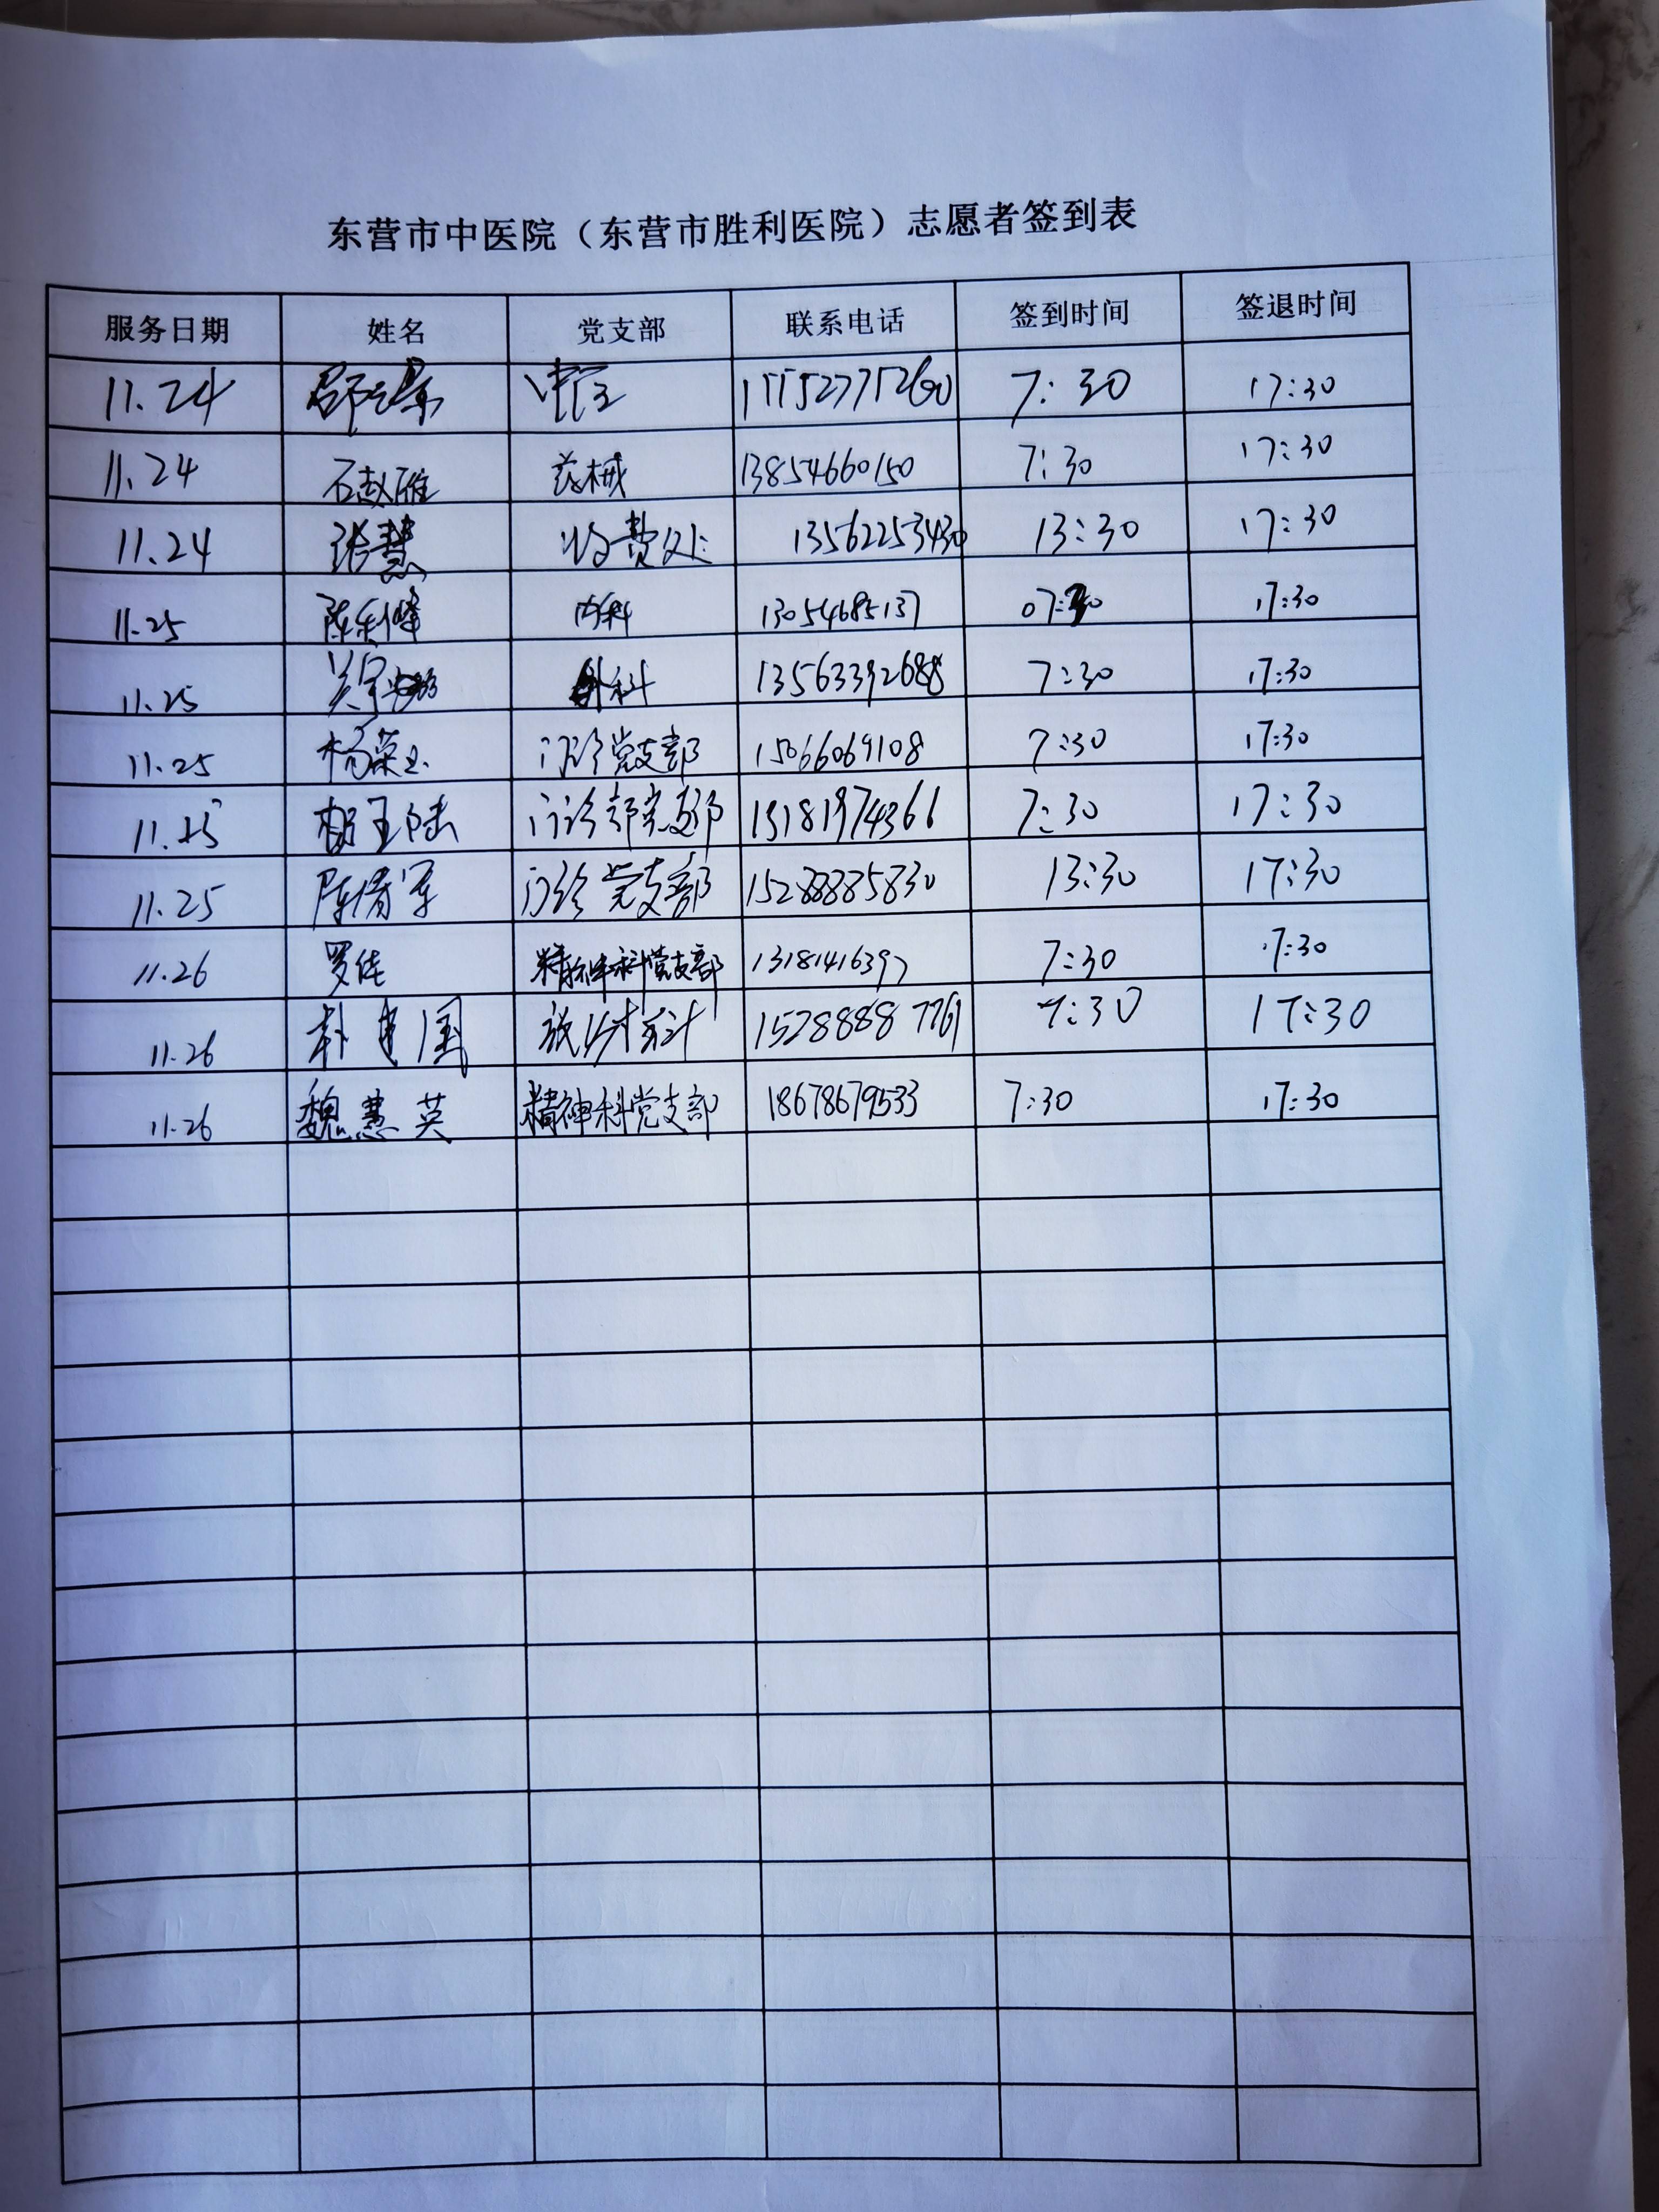 东营市中医院（东营市胜利医院）志愿者签到表
服务日期 姓名 党支部 联系电话 签到时间 签退时间
11.24 7:30 17:30
11.24 石赵雁 药械 13854660150 7:30 17:30
11.24 张慧 收费处 13562253430 13:30 17:30
11.25 陈利峰 内科 13054685137 07:30 17:30
11.25 外科 13563392688 7:30 17:30
11.25 杨荣玉 门诊党支部 15066069108 7:30 17:30
11.25 门诊部党支部 13181974366 7:30 17:30
11.25 陈倩军 门诊党支部 15288885830 13:30 17:30
11.26 罗佳 精神科党支部 13181416397 7:30 17:30
11.26 国 放射科 15288887761 7:30 17:30
11.26 魏慧英 精神科党支部 18678679533 7:30 17:30